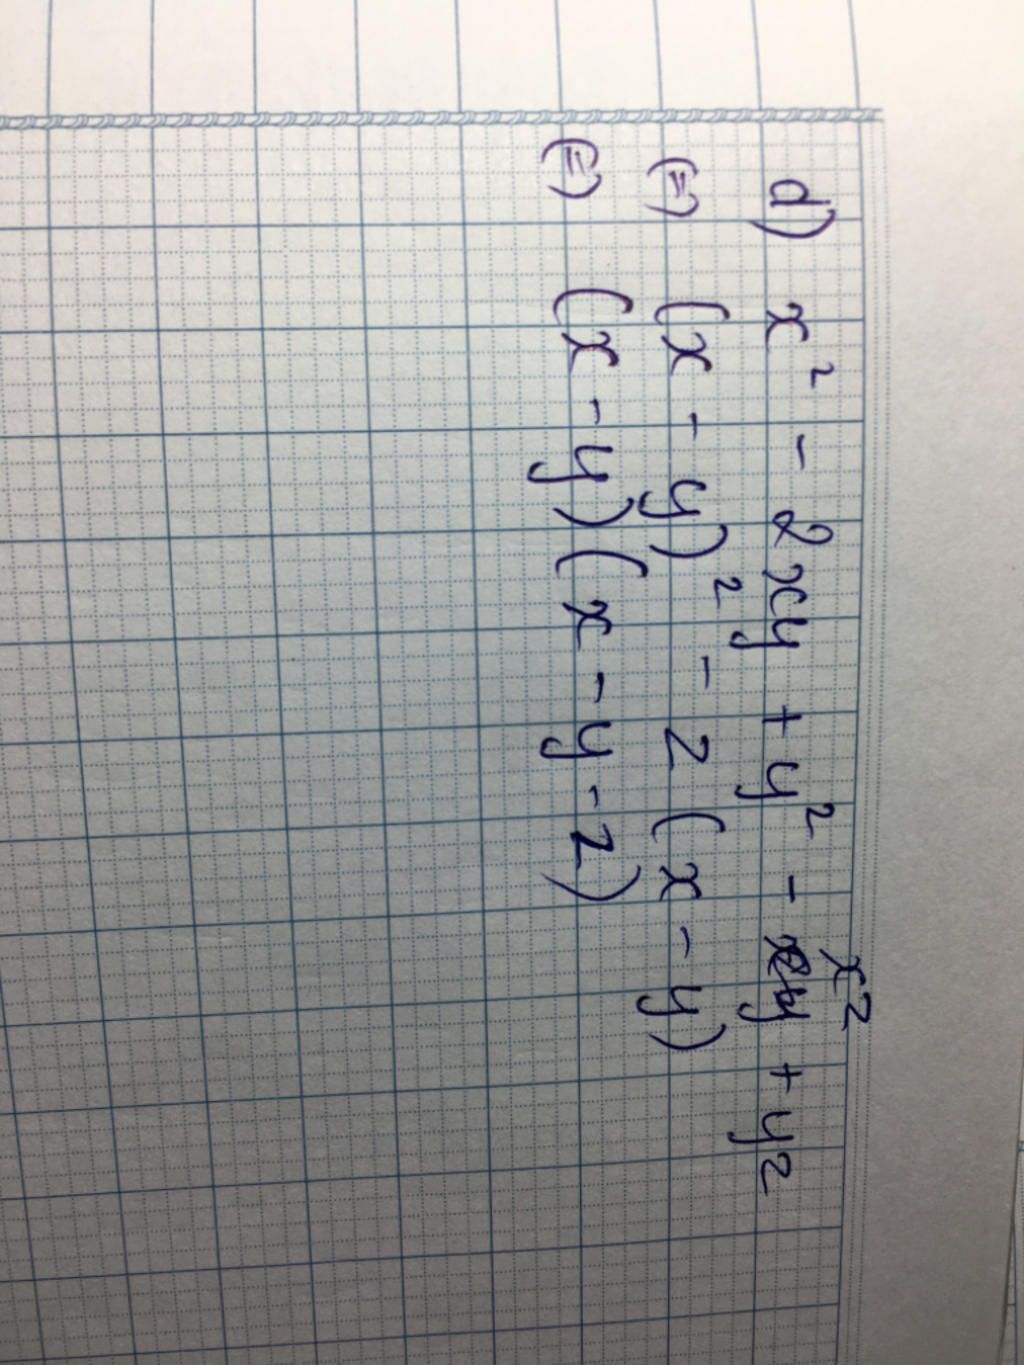 d) x² - 2xy + y² - xz + yz
(=) (x - y)² - z(x - y)
(=) (x - y)(x - y - z)